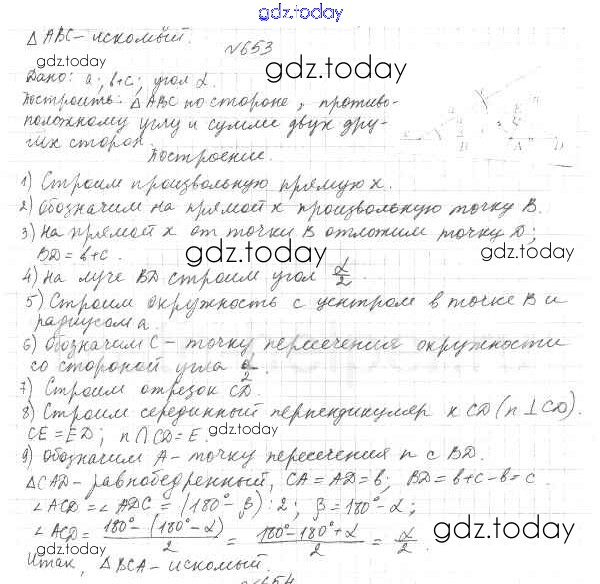 gdz.today
△ABC – искомый.
№653
gdz.today
Дано: a; b+c; угол α.
gdz.today
Построить: △ABC по стороне, противо-
положному углу и сумме двух дру-
гих сторон.
Построение.
1) Строим произвольную прямую x.
2) Обозначим на прямой x произвольную точку B.
3) На прямой x от точки B отложим точку D;
BD = b+c.
gdz.today
gdz.today
4) На луче BD строим угол α/2.
5) Строим окружность с центром в точке B и
радиусом a.
6) Обозначим C – точку пересечения окружности
со стороной угла α/2.
7) Строим отрезок CD.
8) Строим серединный перпендикуляр к CD (n ⊥ CD).
CE = ED; n ∩ CD = E.
gdz.today
9) Обозначим A – точку пересечения n с BD.
△CAD – равнобедренный, CA = AD = b; BD = b+c–b = c.
∠ACD = ∠ADC = (180° – β) : 2; β = 180° – α;
∠ACD = 180° – (180° – α)/2 = 180° – 180° + α/2 = α/2.
gdz.today
gdz.today
Итак, △BCA – искомый.
№654